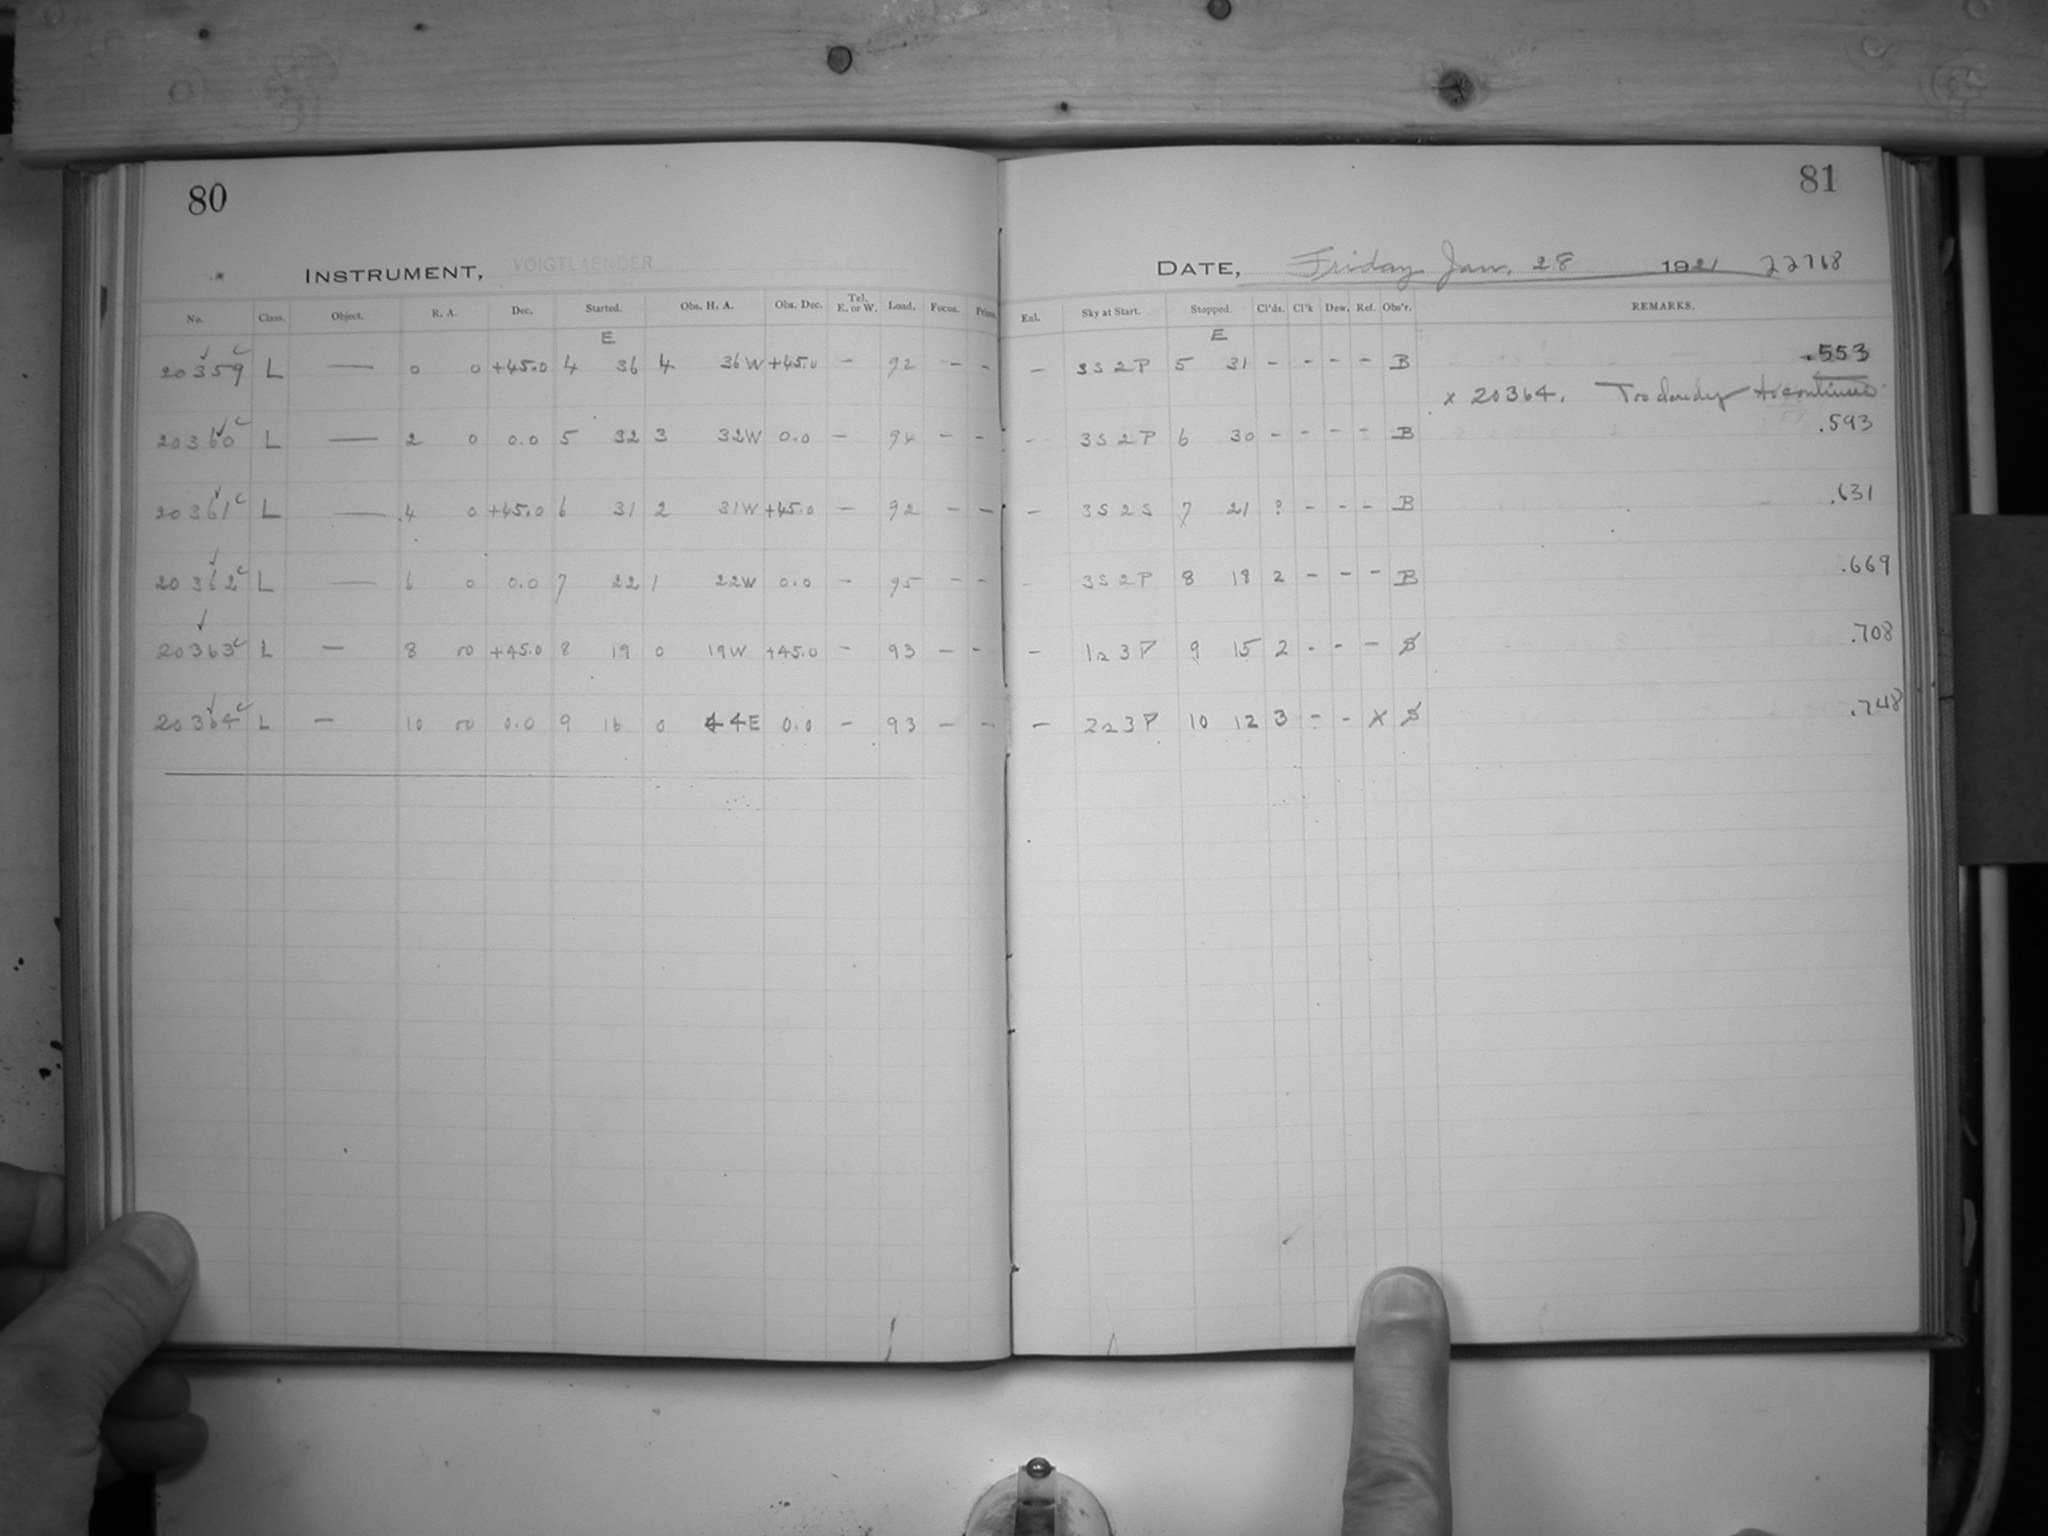 80
INSTRUMENT, VOIGTLAENDER
No. Class. Object. R. A. Dec. Started. Obs. H. A. Obs. Dec. Tel. E. or W. Load. Focus. Prism.
E
20359 L — 0 0 +45.0 4 36 4 36W +45.0 – 92 – –
20360 L — 2 0 0.0 5 32 3 32W 0.0 – 94 – –
20361 L — 4 0 +45.0 6 31 2 31W +45.0 – 92 – –
20362 L — 6 0 0.0 7 22 1 22W 0.0 – 95 – –
20363 L — 8 00 +45.0 8 19 0 19W +45.0 – 93 – –
20364 L — 10 00 0.0 9 16 0 44E 0.0 – 93 – –
81
DATE, Friday Jan. 28 1921 22718
Enl. Sky at Start. Stopped. Cl'ds. Cl'k Dew. Ref. Obs'r. REMARKS.
E
– 3S2P 5 31 – – – – B .553
x 20364. Too cloudy to continue
– 3S2P 6 30 – – – – B .593
– 3S2S 7 21 ? – – – B .631
– 3S2P 8 18 2 – – – B .669
– 1a3P 9 15 2 – – – S .708
– 2a3P 10 12 3 – – X S .748